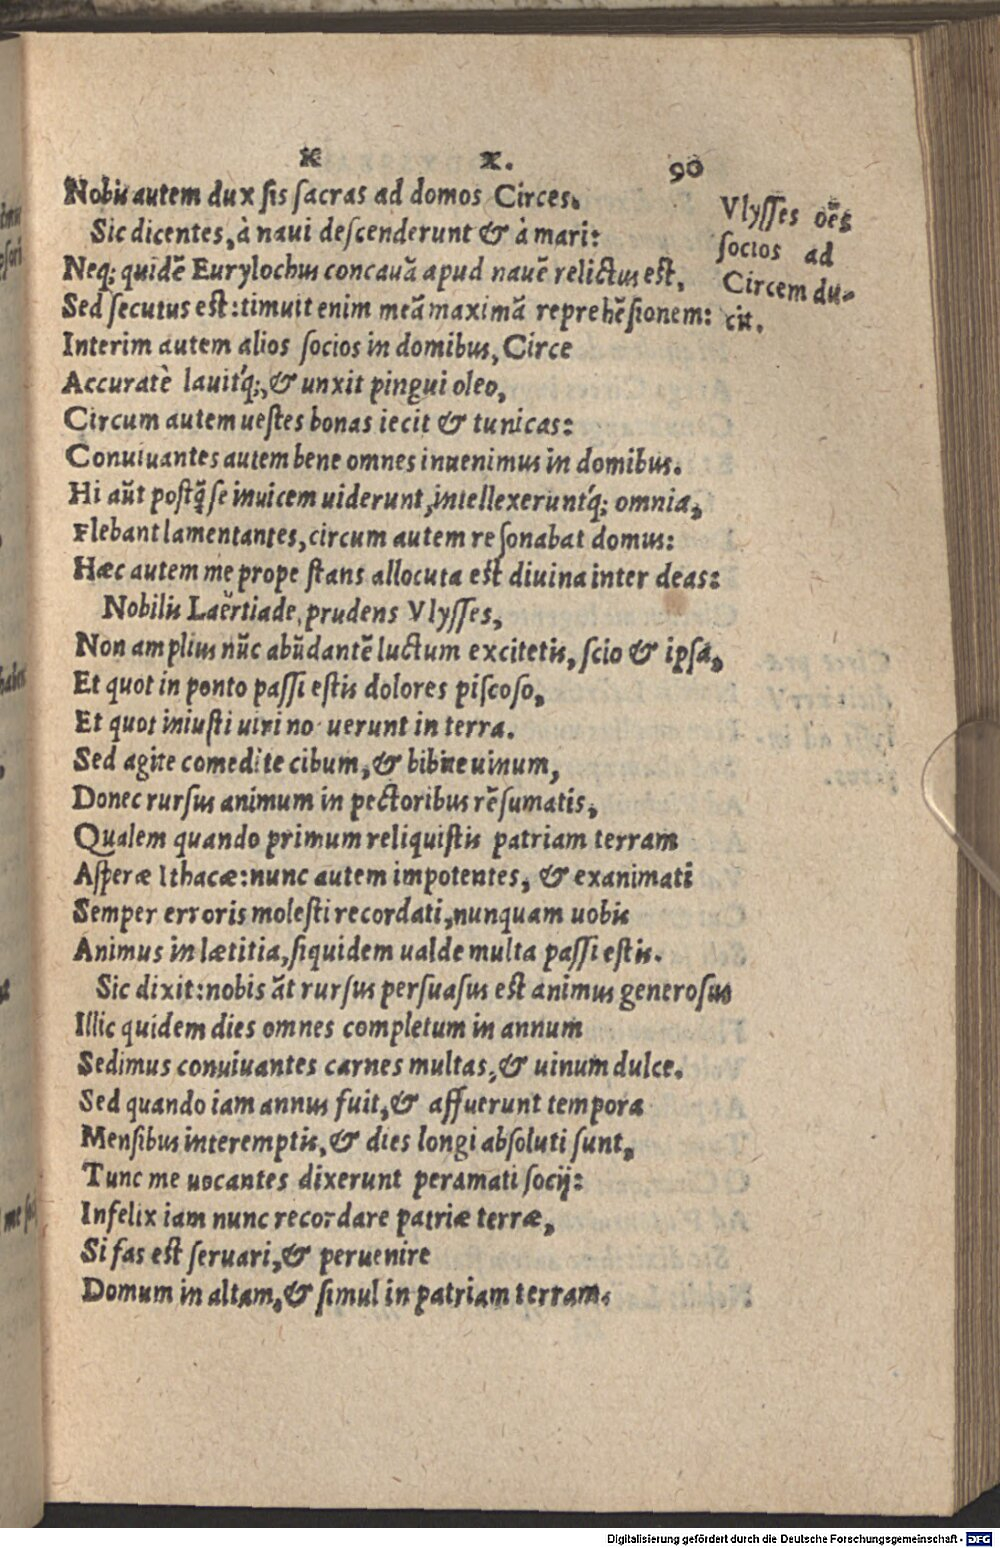 K X. 90
Nobis autem dux sis sacras ad domos Circes.
Sic dicentes, à naui descenderunt & à mari:
Neq; quidē Eurylochus concauā apud nauē relictus est,
Sed secutus est: timuit enim meā maximā reprehēsionem:
Interim autem alios socios in domibus, Circe
Accuratè lauitq́;, & unxit pingui oleo,
Circum autem uestes bonas iecit & tunicas:
Conuiuantes autem bene omnes inuenimus in domibus.
Hi aūt postq̄ se inuicem uiderunt, intellexeruntq́; omnia,
Flebant lamentantes, circum autem resonabat domus:
Hæc autem me prope stans allocuta est diuina inter deas:
Nobilis Laërtiade, prudens Vlysses,
Non amplius nūc abūdantē luctum excitetis, scio & ipsa,
Et quot in ponto passi estis dolores piscoso,
Et quot iniusti uiri no uerunt in terra.
Sed agite comedite cibum, & bibite uinum,
Donec rursus animum in pectoribus rēsumatis,
Qualem quando primum reliquistis patriam terram
Asperæ Ithacæ: nunc autem impotentes, & exanimati
Semper erroris molesti recordati, nunquam uobis
Animus in lætitia, siquidem ualde multa passi estis.
Sic dixit: nobis āt rursus persuasus est animus generosus
Illic quidem dies omnes completum in annum
Sedimus conuiuantes carnes multas, & uinum dulce.
Sed quando iam annus fuit, & affuerunt tempora
Mensibus interemptis, & dies longi absoluti sunt,
Tunc me uocantes dixerunt peramati socij:
Infelix iam nunc recordare patriæ terræ,
Si fas est seruari, & peruenire
Domum in altam, & simul in patriam terram.
Vlysses oēs
socios ad
Circem du-
cit.
Digitalisierung gefördert durch die Deutsche Forschungsgemeinschaft - DFG